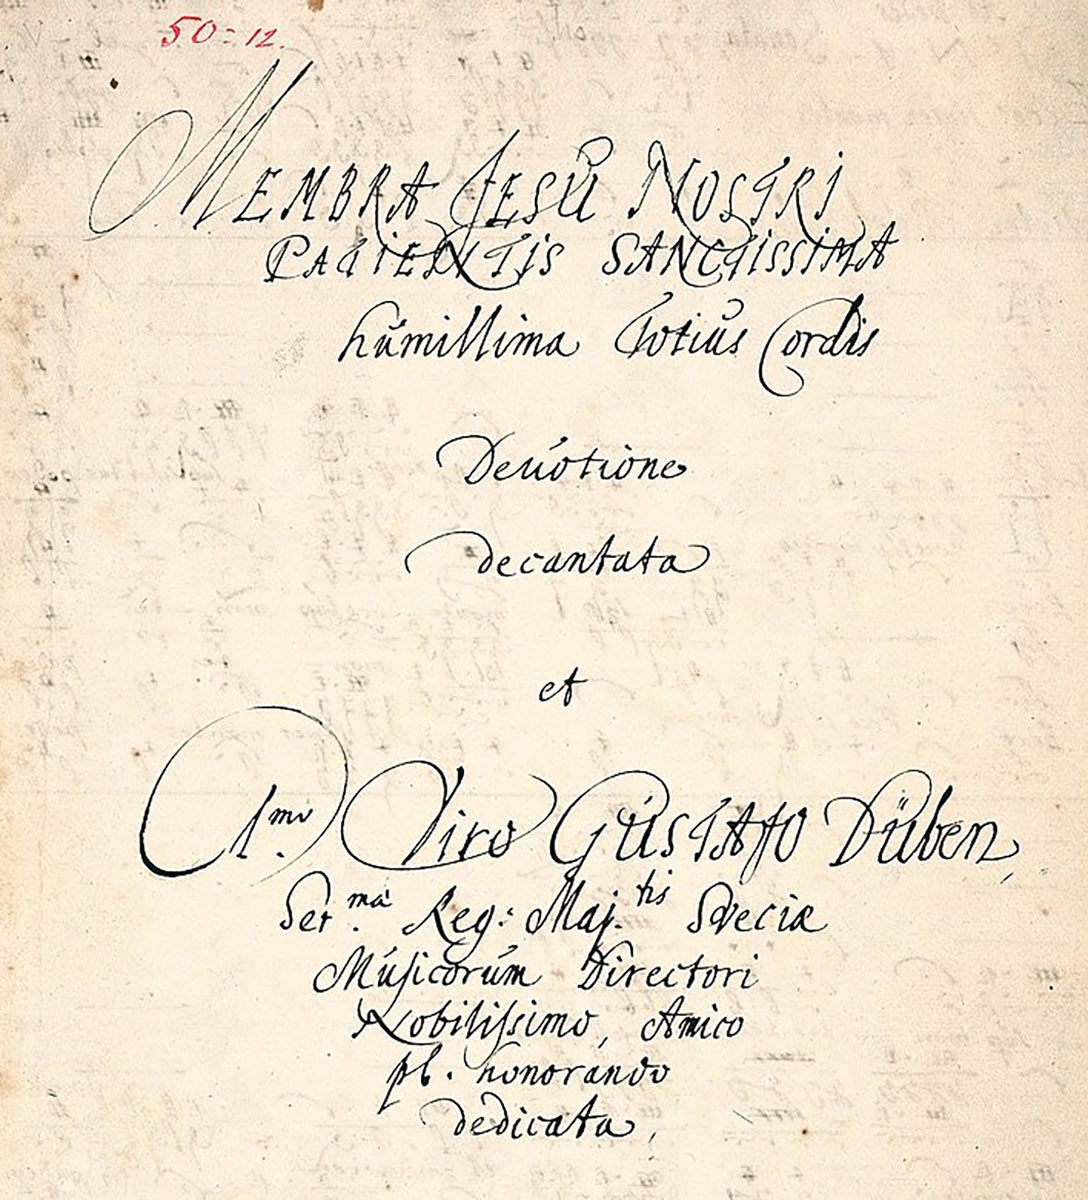 50=12.
MEMBRA JESU NOSTRI
PATIENTIS SANCTISSIMA
humillima Totius Cordis
Devotione
decantata
et
Viro GUSTAfO Düben,
Ser.ma Reg: Maj.tis Sveciæ
Musicorum Directori
Nobilissimo, Amico
pl. honorando
dedicata,